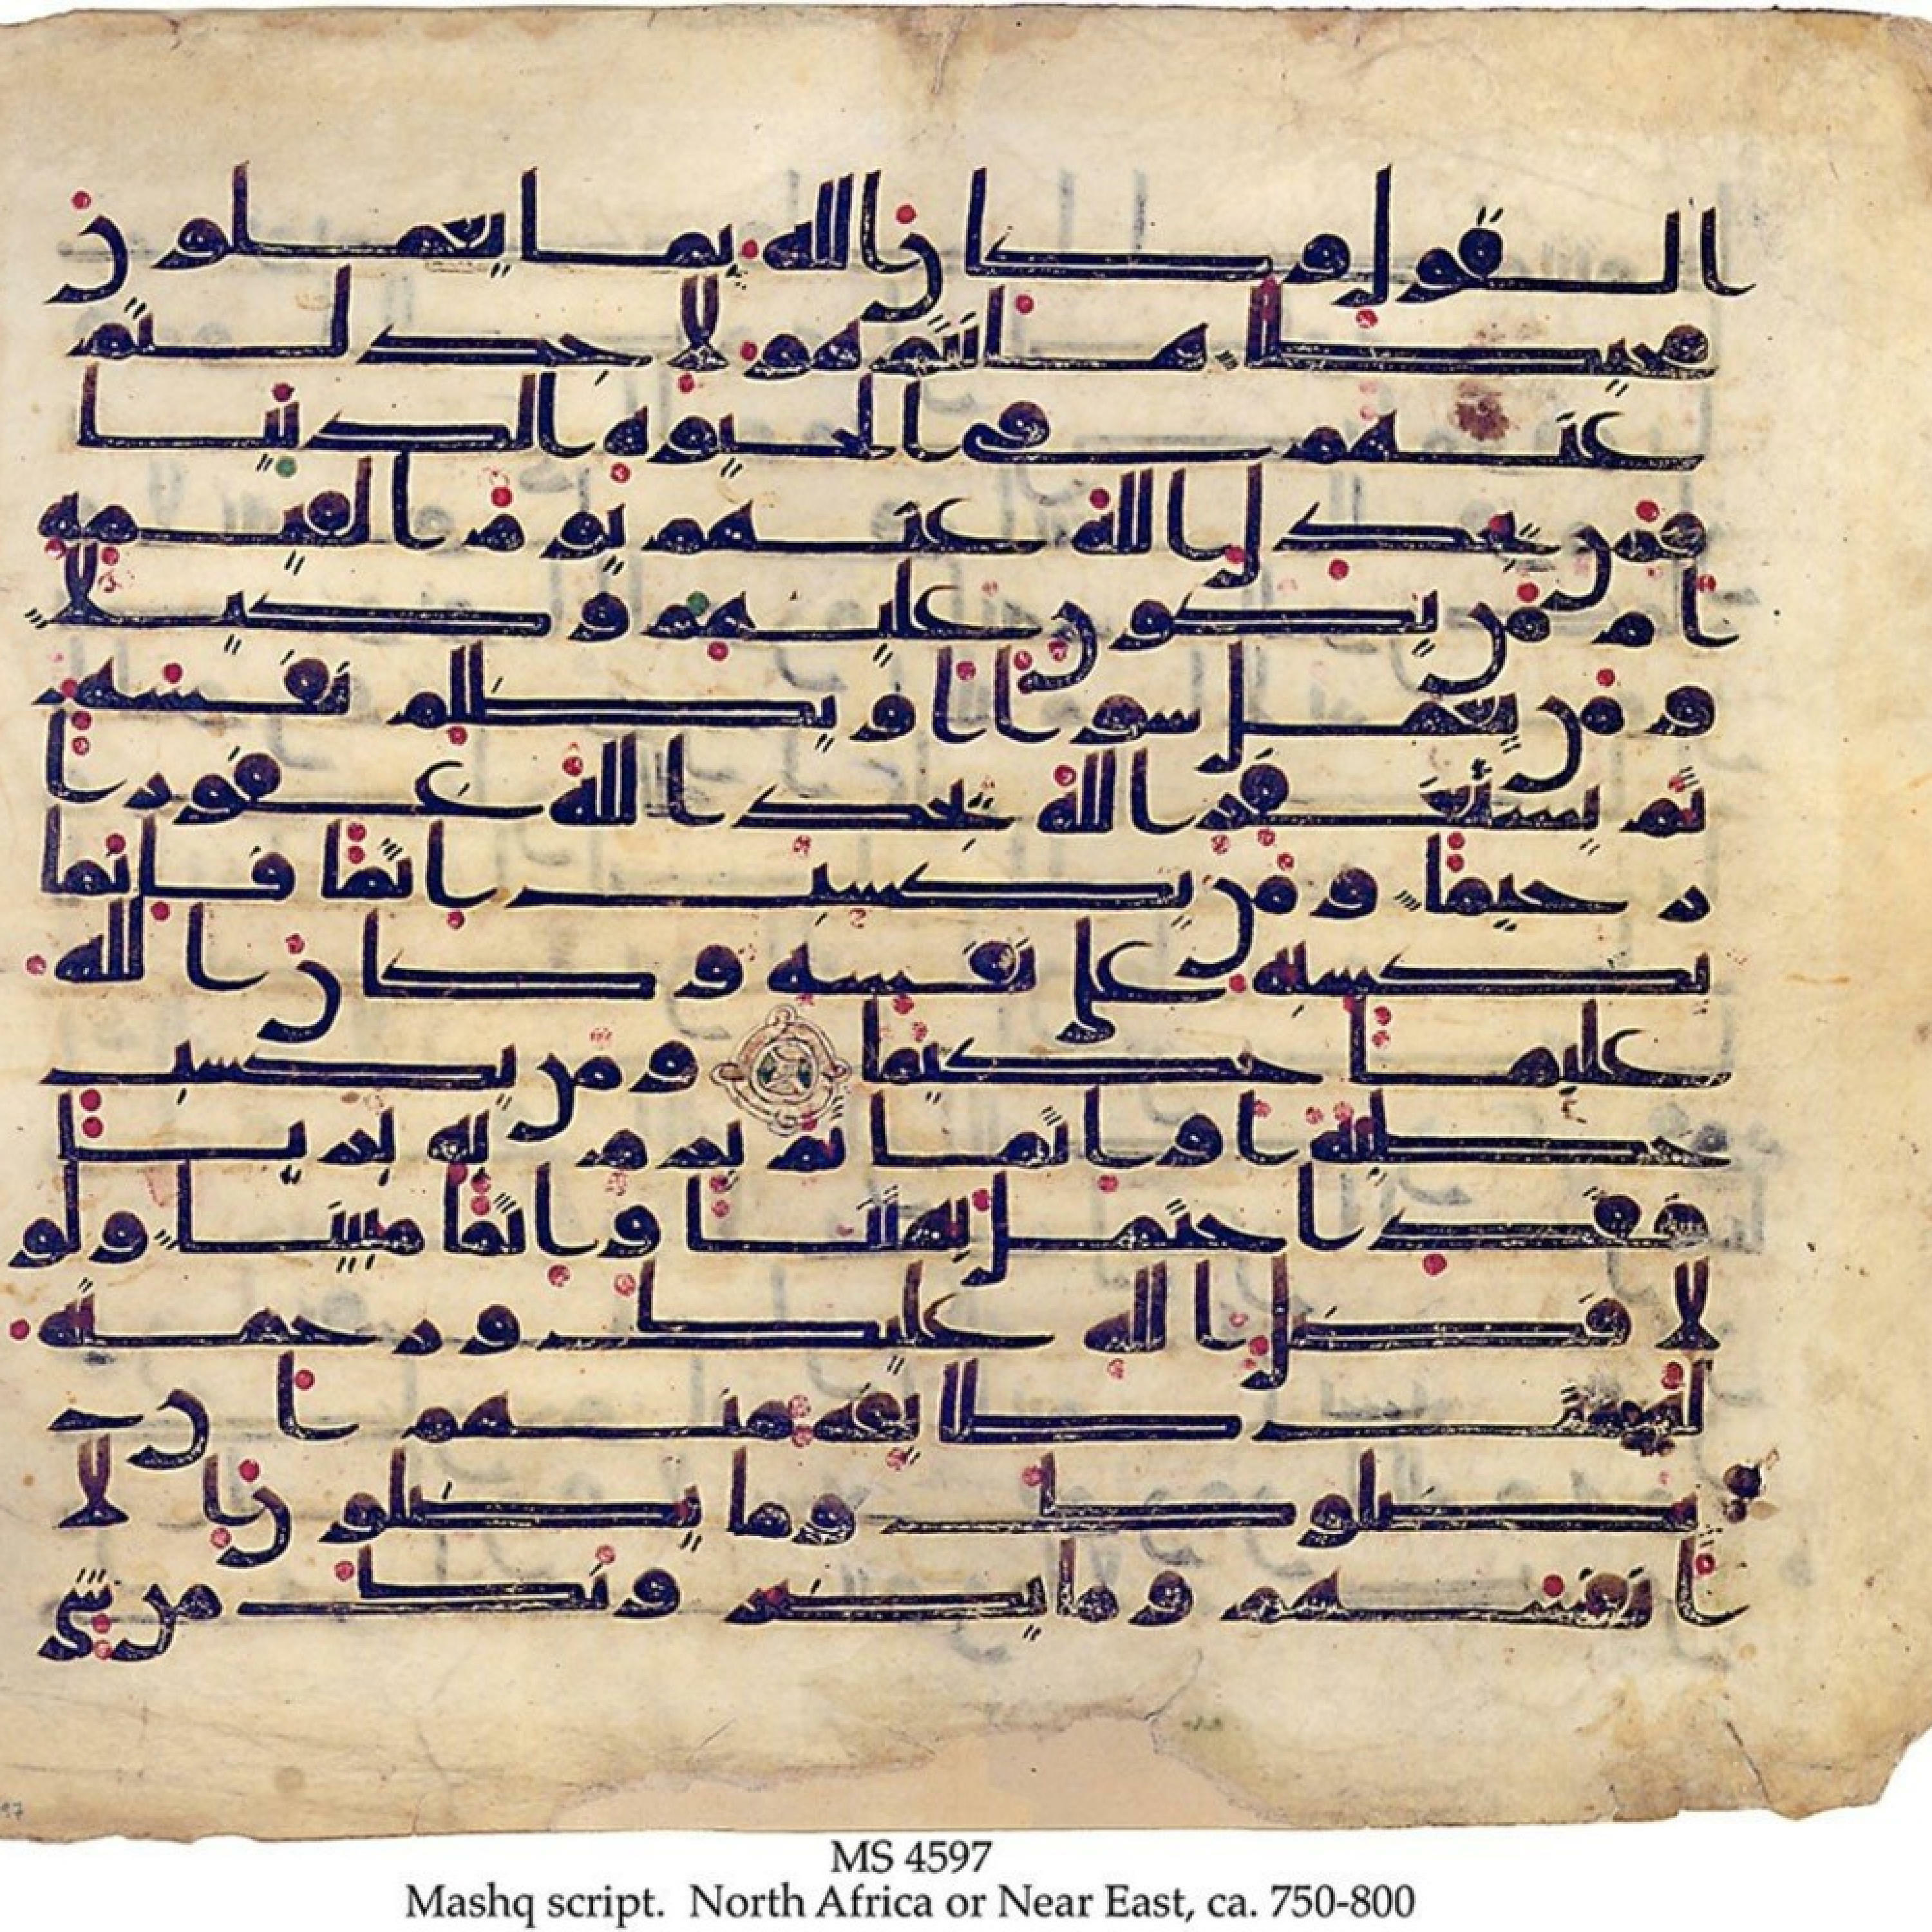 القول وكان الله بما يعملون
محيطا هانتم هولا جدلتم
عنهم في الحيوه الدنيا
فمن يجدل الله عنهم يوم القيمه
ام من يكون عليهم وكيلا
ومن يعمل سوا او يظلم نفسه
ثم يستغفر الله يجد الله غفورا
رحيما ومن يكسب اثما فانما
يكسبه على نفسه وكان الله
عليما حكيما ومن يكسب
خطيه او اثما ثم يرم به بريا
فقد احتمل بهتنا واثما مبينا ولو
لا فضل الله عليك ورحمته
لهمت طايفه منهم ان
يضلوك وما يضلون الا
انفسهم وما يضرونك من شي
MS 4597
Mashq script. North Africa or Near East, ca. 750-800